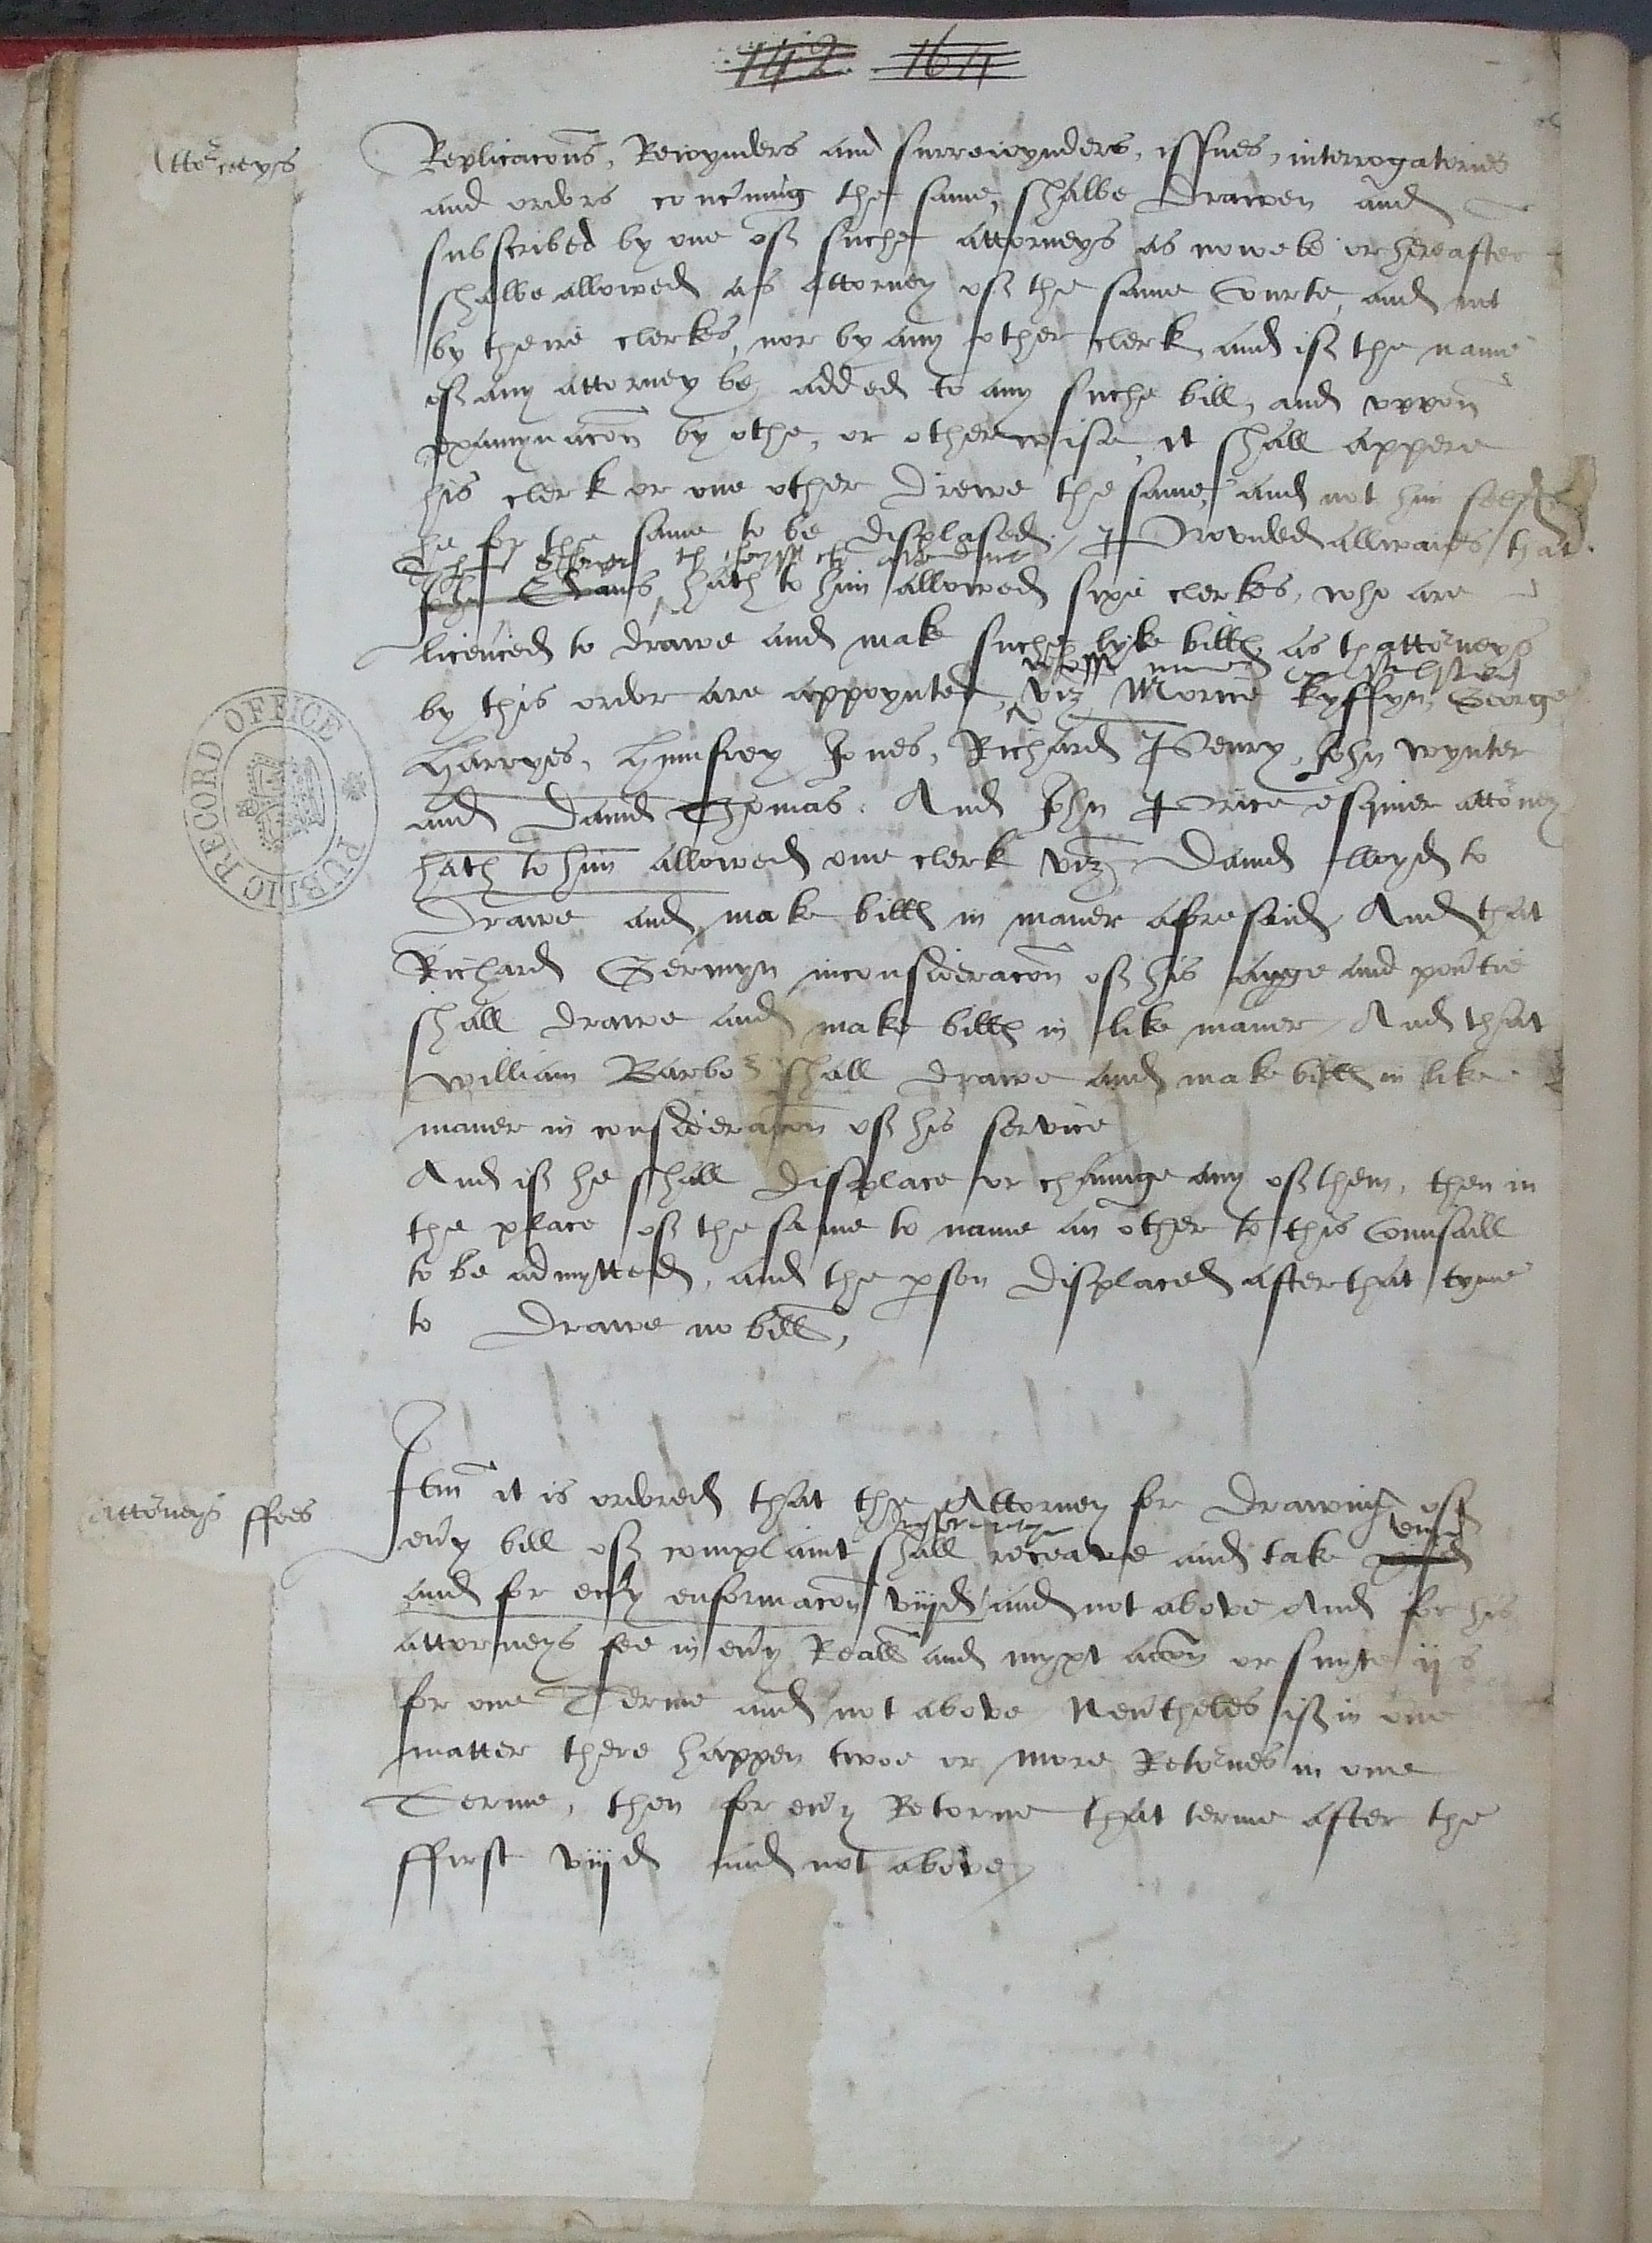 142 164
Attorneys
Replicacons, Reioynders and surreioynders, issues, interrogatories
and orders conc'ning the same, shalbe drawen and
subscribed by one of suche attorneys as nowe be or hereafter
shalbe allowed as attorney of the same Courte, and not
by theire clerkes, nor by any other clerk, and if the name
of any attorney be added to any suche bill, and vppon
examynacon by othe, or otherwise, it shall appere
his clerk or one other drewe the same, and not him self
he for the same to be displased. Provided allwaies that
John Evans, hath to him allowed sixe clerkes, who are
licenced to drawe and make suche lyke bills as thattorneys
by this order are appoynted, viz Morice Kyffyn, George
Harryes, Humfrey Jones, Richard Henry, John wynter
and David Thomas. And John Price esquier attorney
hath to him allowed one clerk viz David lloyd to
drawe and make bills in maner aforesaid, And that
Richard Germyn inconsideracon of his ayge and pou'tie
shall drawe and make bills in like maner, And that
william Barbor shall drawe and make bills in like
maner in consideracon of his service
And if he shall displace or chaunge any of them, then in
the place of the same to name an other to this Counsaill
to be admytted, and the p'son displaced after that tyme
to drawe no bill,
Attorneys ffees
Itm it is ordered that the Attorney for drawing of
eu'y bill of complaint shall receave and take
and for eu'y enformacon viijd and not above And for his
attorneys fee in eu'y Reall and myxt accon or suyte ijs
for one Terme and not above Neu'theles if in one
matter there happen twoe or more Retornes in one
Terme, then for eu'y Retorne that terme after the
ffirst viijd and not above
PUBLIC RECORD OFFICE